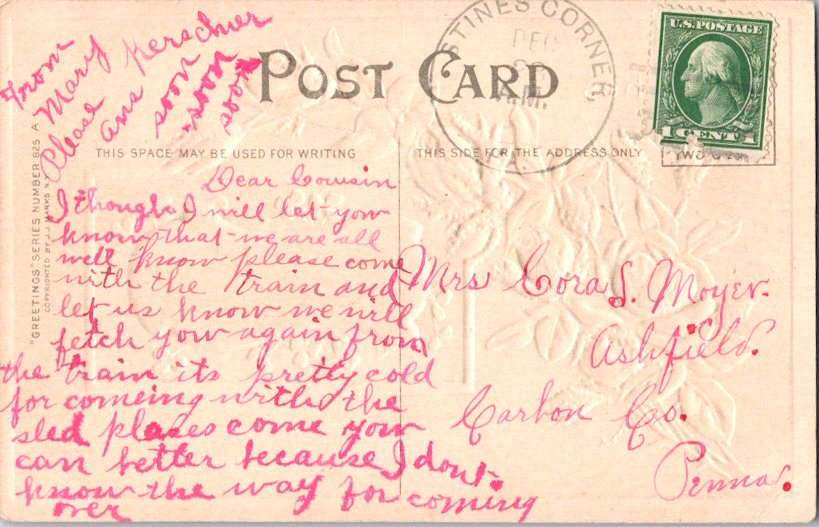 From
Mary Kerschner
Please ans soon
soon
soon
POST CARD
STINES CORNER,
DEC
A.M.
U.S. POSTAGE
1 CENT 1
THIS SPACE MAY BE USED FOR WRITING
THIS SIDE FOR THE ADDRESS ONLY
"GREETINGS" SERIES NUMBER 825 A
COPYRIGHTED BY J.J. MARKS N.
Dear Cousin
I thought I will let you
know that we are all
well know please come
with the train and
let us know we will
fetch you again from
the train its pretty cold
for comeing with the
sled plases come you
can better because I dont
know the way for coming
over
Mrs Cora S. Moyer.
Ashfield.
Carbon Co.
Penna.